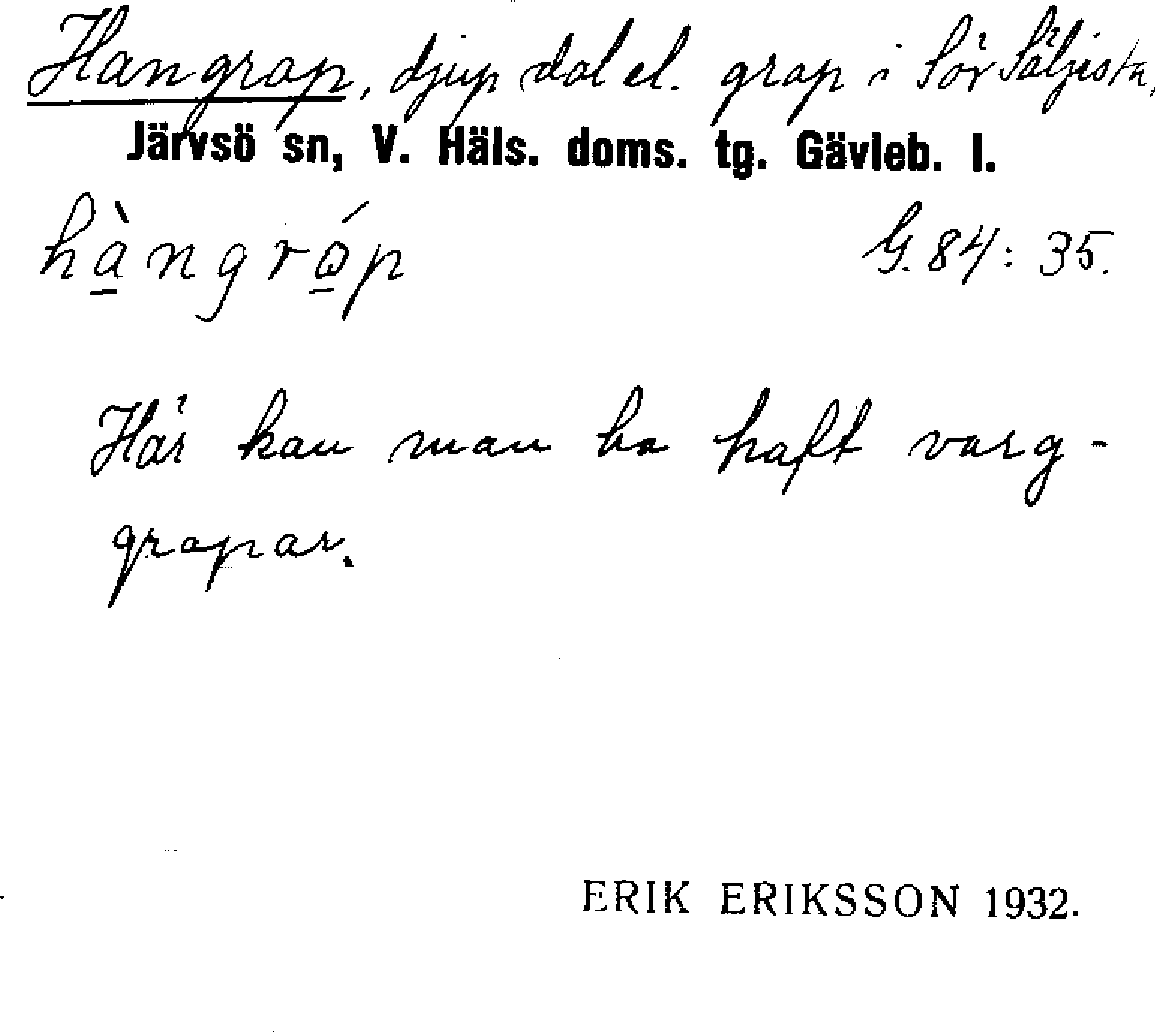 Hangrop, djup dal el. grop i Sör Säljesta,
Järvsö sn, V. Häls. doms. tg. Gävleb. l.
hàngróp G. 84: 35.
Här kan man ha haft varg-
gropar.
ERIK ERIKSSON 1932.